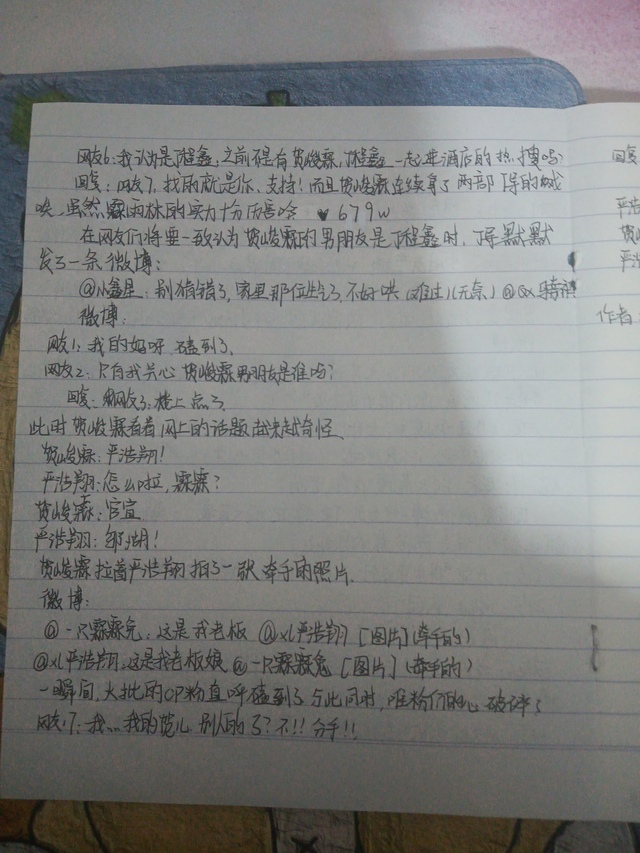 网友6:我认为是丁程鑫,之前不是有贺峻霖,丁程鑫一起进酒店的热搜吗?
回复:网友7,找的就是你,支持!而且贺峻霖连续拿了两部 的
虽然霖雨林的实力十分厉害哈 ♥679w
在网友们将要一致认为贺峻霖的男朋友是丁程鑫时,丁 默默
发了一条微博:
@小鑫星:别猜错了,家里那位生气了,不好哄(难过)(无奈)@
微博:
网友1:我的妈呀 磕到了,
网友2:只有我关心 贺峻霖男朋友是谁吗?
回复:网友3:楼上 点了,
此时 贺峻霖看着网上的话题越来越奇怪
贺峻霖:严浩翔!
严浩翔:怎么啦,霖霖?
贺峻霖:官宣
严浩翔:
贺峻霖拉着严浩翔拍了一张 牵手的照片.
微博:
@一只霖霖兔:这是我老板 @xl严浩翔 [图片](牵手的)
@xl严浩翔:这是我老板娘@一只霖霖兔 [图片](牵手的)
一瞬间,大批的CP粉直呼磕到了 与此同时,唯粉们的心 破碎了
网友17:我...我的贺儿 别人的了?不!! 分手!!
回复
严浩
贺峻
严浩
作者: